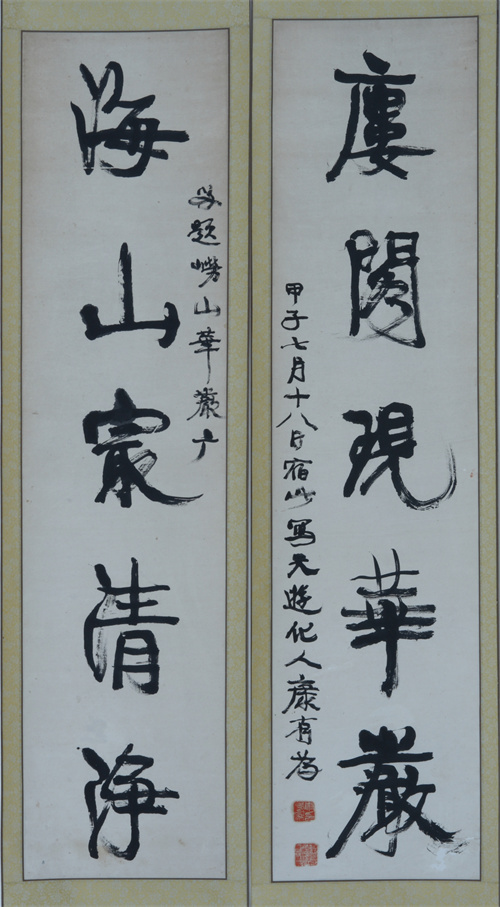 廔閣現華嚴
甲子七月十八日宿此寫天遊化人康有為
題嶗山華嚴广
海山㝡清淨